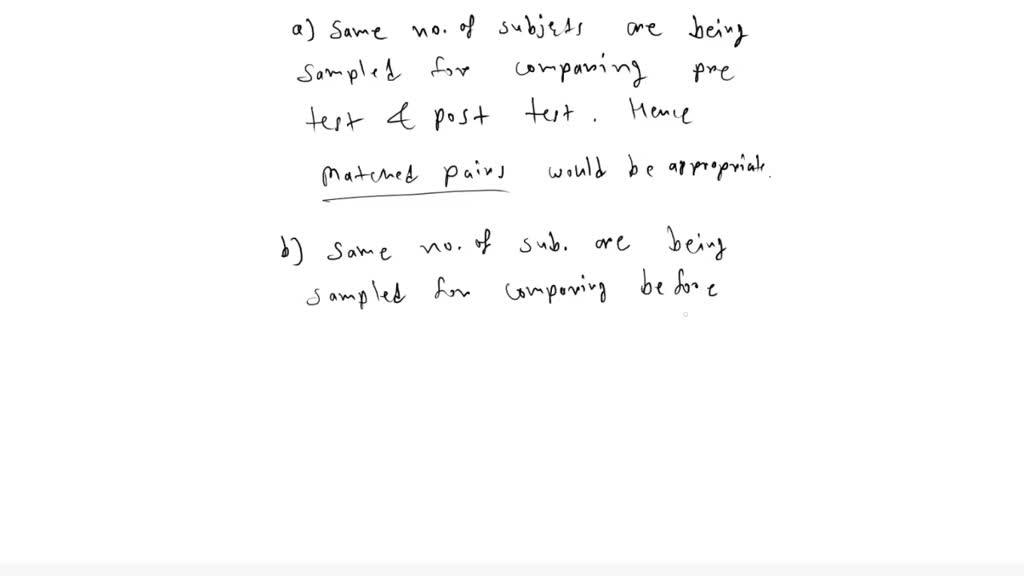 a) Same no. of subjets are being
sampled for comparing pre
test & post test. Hence
Matched pairs would be appropriate.
b) Same no. of sub. are being
sampled for comparing before